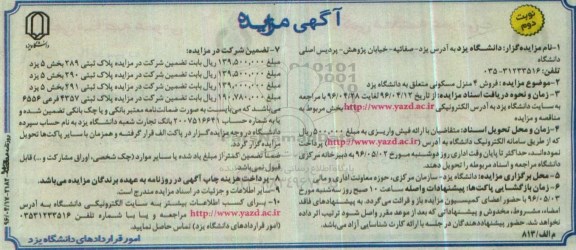 آگهی مزایده
نوبت دوم
دانشگاه یزد
۱-نام مزایده‌گزار: دانشگاه یزد به آدرس یزد- صفائیه- خیابان پژوهش- پردیس اصلی
دانشگاه
تلفن: ۰۳۵-۳۱۲۳۳۵۱۶
۲-موضوع مزایده: فروش ۴ منزل مسکونی متعلق به دانشگاه یزد
۳-زمان و نحوه دریافت اسناد مزایده: از تاریخ ۹۶/۰۴/۱۲ لغایت ۹۶/۰۴/۲۸ با مراجعه
به سایت دانشگاه یزد به آدرس الکترونیکی http://www.yazd.ac.ir بخش مربوط به
مناقصه و مزایده
۴-زمان و محل تحویل اسناد: متقاضیان با ارائه فیش واریزی به مبلغ ۵۰۰،۰۰۰ ریال
که از طریق سامانه الکترونیک دانشگاه به آدرس (http://www.yazd.ac.ir) پرداخت
نموده‌اند، حداکثر تا پایان وقت اداری روز دوشنبه مورخ ۹۶/۰۵/۰۲ به دبیرخانه مرکزی
دانشگاه مراجعه و اسناد مربوطه را تحویل دهند.
۵-محل برگزاری مزایده: دانشگاه یزد- سازمان مرکزی، حوزه معاونت اداری و مالی
۶-زمان بازگشایی پاکت‌ها: پیشنهادات واصله ساعت ۱۰ صبح روز سه‌شنبه مورخ
۹۶/۰۵/۰۳ با حضور اعضای کمیسیون مزایده باز و قرائت می گردد. به پیشنهادهای فاقد
امضاء، مشروط، مخدوش و پیشنهاداتی که بعد از موعد مقرر واصل شود ترتیب اثر داده
نخواهد شد. حضور پیشنهاددهندگان در جلسه با ارائه کارت شناسایی آزاد می‌باشد.
م الف/ ۸۱۳
۷-تضمین شرکت در مزایده:
مبلغ ۱۳۹،۵۰۰،۰۰۰ ریال بابت تضمین شرکت در مزایده پلاک ثبتی ۲۸۹ بخش ۵ یزد
مبلغ ۱۳۹،۵۰۰،۰۰۰ ریال بابت تضمین شرکت در مزایده پلاک ثبتی ۲۹۰ بخش ۵ یزد
مبلغ ۱۳۹،۰۰۰،۰۰۰ ریال بابت تضمین شرکت در مزایده پلاک ثبتی ۴۹۱ بخش ۵ یزد
مبلغ ۱۹۰،۰۰۰،۰۰۰ ریال بابت تضمین شرکت در مزایده پلاک ثبتی ۴۳۵۷ فرعی ۶۵۵۶
می‌باشد که می‌بایست به صورت ضمانتنامه معتبر بانکی و یا چک بانکی تضمین شده و
یا به شماره حساب ۲۰۰۷۵۱۶۶۴۱ بانک تجارت شعبه دانشگاه یزد به نام حساب سپرده
دانشگاه در وجه مزایده‌گزار در پاکت الف قرار گرفته و همزمان با سایر پاکت‌ها تحویل
مزایده‌گزار گردد.
ضمناً تضمین کمتر از مبلغ یاد شده یا سایر موارد (چک شخصی، اوراق مشارکت و ...) قابل
قبول نمی‌باشد.
۸-پرداخت هزینه چاپ آگهی در روزنامه به عهده برندگان مزایده می‌باشد.
۹-سایر اطلاعات و جزئیات در اسناد مزایده مندرج است.
۱۰- برای کسب اطلاعات بیشتر به سایت الکترونیکی دانشگاه به آدرس
http://www.yazd.ac.ir مراجعه و یا با شماره تلفن ۰۳۵۳۱۲۳۳۵۱۶
(امور قراردادهای دانشگاه یزد) تماس حاصل نمایید.
امور قراردادهای دانشگاه یزد